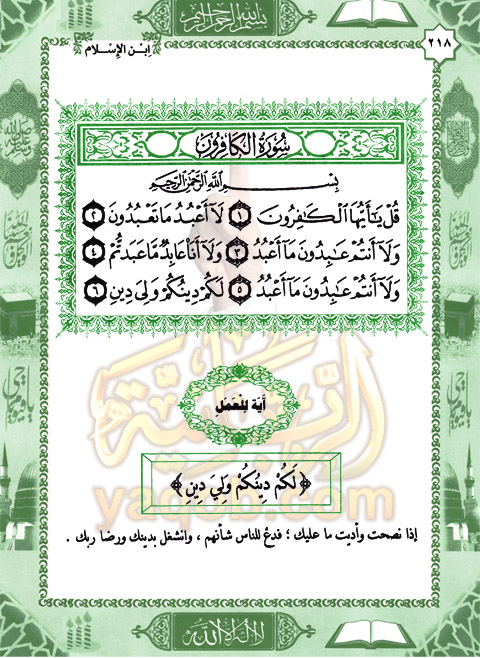 بسم الله الرحمن الرحيم
٢١٨
ابن الإسلام
سُورَةُ الكَافِرُونَ
بِسْمِ اللَّهِ الرَّحْمَٰنِ الرَّحِيمِ
قُلْ يَٰٓأَيُّهَا ٱلْكَٰفِرُونَ ١ لَآ أَعْبُدُ مَا تَعْبُدُونَ ٢
وَلَآ أَنتُمْ عَٰبِدُونَ مَآ أَعْبُدُ ٣ وَلَآ أَنَا۠ عَابِدٌ مَّا عَبَدتُّمْ ٤
وَلَآ أَنتُمْ عَٰبِدُونَ مَآ أَعْبُدُ ٥ لَكُمْ دِينُكُمْ وَلِىَ دِينِ ٦
آيَة لِلْعَمَلِ
﴿ لَكُمْ دِينُكُمْ وَلِيَ دِينِ ﴾
yaqob.com
إذا نصحت وأديت ما عليك ؛ فدعْ للناس شأنهم ، وانشغل بدينك ورضا ربك .
لا إله إلا الله